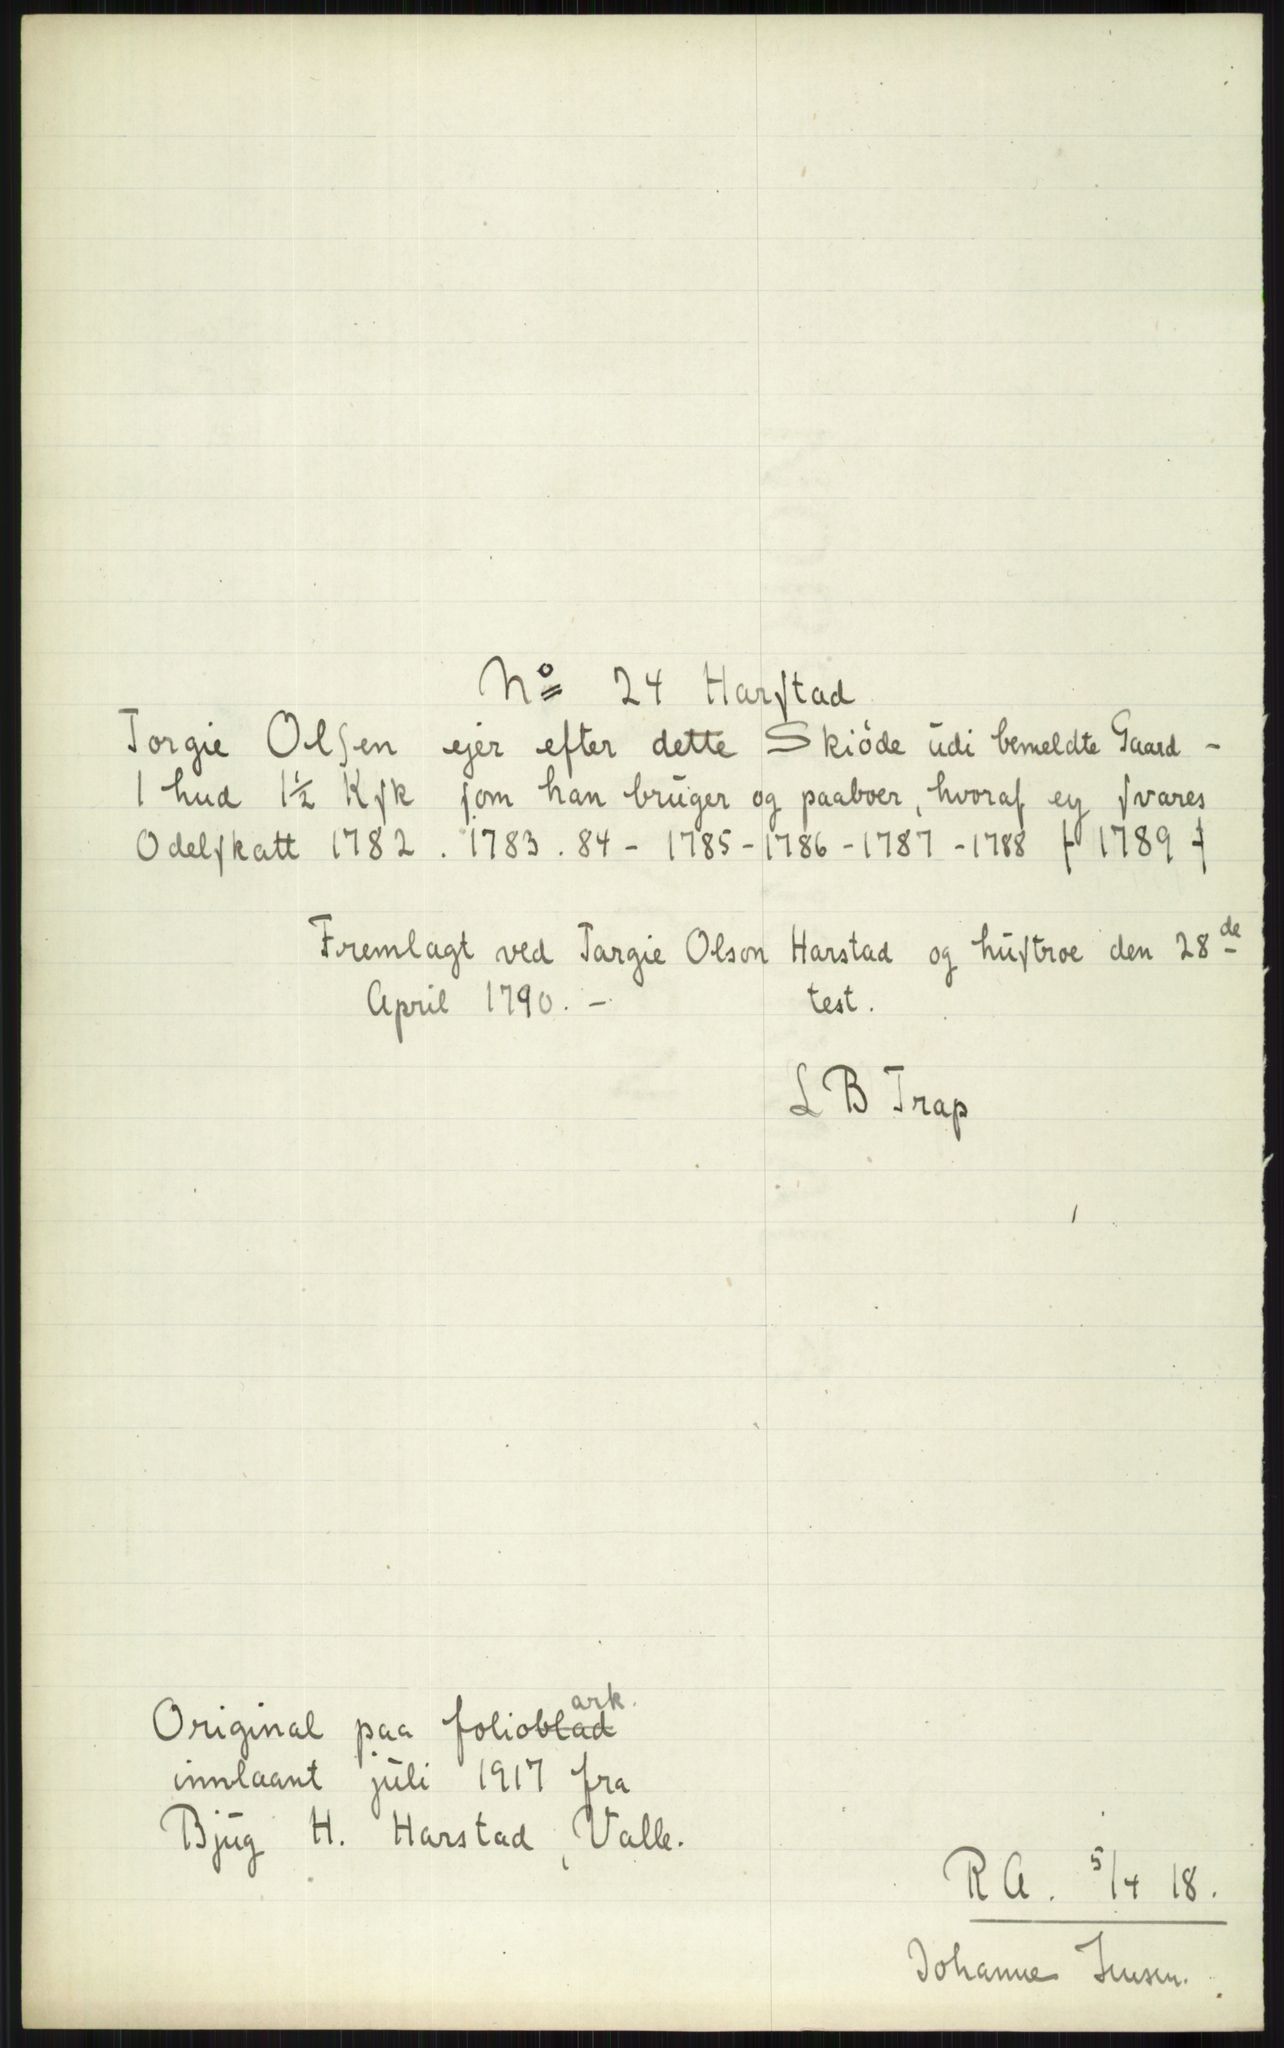 No 24 Harſtad
Torgie Olſen ejer efter dette Skiöde udi bemeldte Gaard -
1 hud 1½ Kſk ſom han bruger og paaboer, hvoraf ey ſvares
Odelſkatt 1782 . 1783 . 84 - 1785 - 1786 - 1787 - 1788 ⨍ 1789 ⨍
Fremlagt ved Targie Olson Harstad og huſtroe den 28de
April 1790. - test.
L B Trap
Original paa folioblad ark.
innlaant juli 1917 fra
Bjug H. Harstad, Valle.
R A. 5/4 18.
Johanne Jensen.